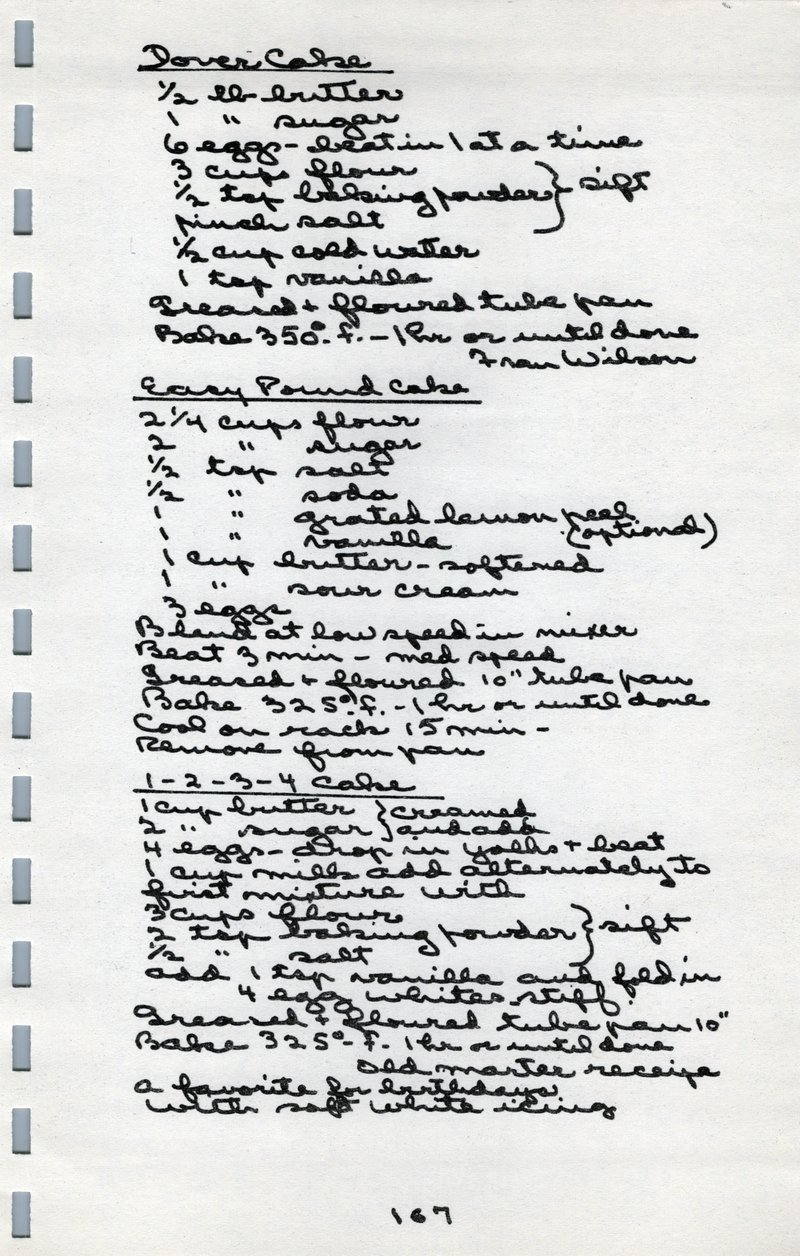 Dover Cake
1/2 lb butter
1 " sugar
6 eggs - beat in 1 at a time
3 cups flour
1/2 tsp baking powder } sift
pinch salt
1/2 cup cold water
1 tsp vanilla
Greased + floured tube pan
Bake 350° f. - 1 hr or until done
Fran Wilson
Easy Pound Cake
2 1/4 cups flour
2 " sugar
1/2 tsp salt
1/2 " soda
1 " grated lemon peel
1 " vanilla (optional)
1 cup butter - softened
1 " sour cream
3 eggs
Blend at low speed in mixer
Beat 3 min - med speed
Greased + floured 10" tube pan
Bake 325° f. - 1 hr or until done
Cool on rack 15 min -
Remove from pan
1-2-3-4 Cake
1 cup butter } creamed
2 " sugar } and add
4 eggs - drop in yolks + beat
1 cup milk add alternately to
first mixture with
3 cups flour
2 tsp baking powder } sift
1/2 " salt
add 1 tsp vanilla and fold in
4 egg whites stiff.
Greased + floured tube pan 10"
Bake 325° - f. 1 hr or until done
Old marter receipe
a favorite for birthdays
with soft white icing
167